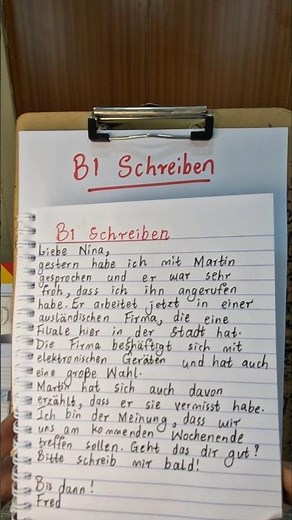 B1 Schreiben
B1 Schreiben
Liebe Nina,
gestern habe ich mit Martin
gesprochen und er war sehr
froh, dass ich ihn angerufen
habe. Er arbeitet jetzt in einer
ausländischen Firma, die eine
Filiale hier in der Stadt hat.
Die Firma beshäftigt sich mit
elektronischen Geräten und hat auch
eine große Wahl.
Martin hat sich auch davon
erzählt, dass er sie vermisst habe.
Ich bin der Meinung, dass wir
uns am kommenden Wochenende
treffen sollen. Geht das dir gut?
Bitte schreib mir bald!
Bis dann!
Fred